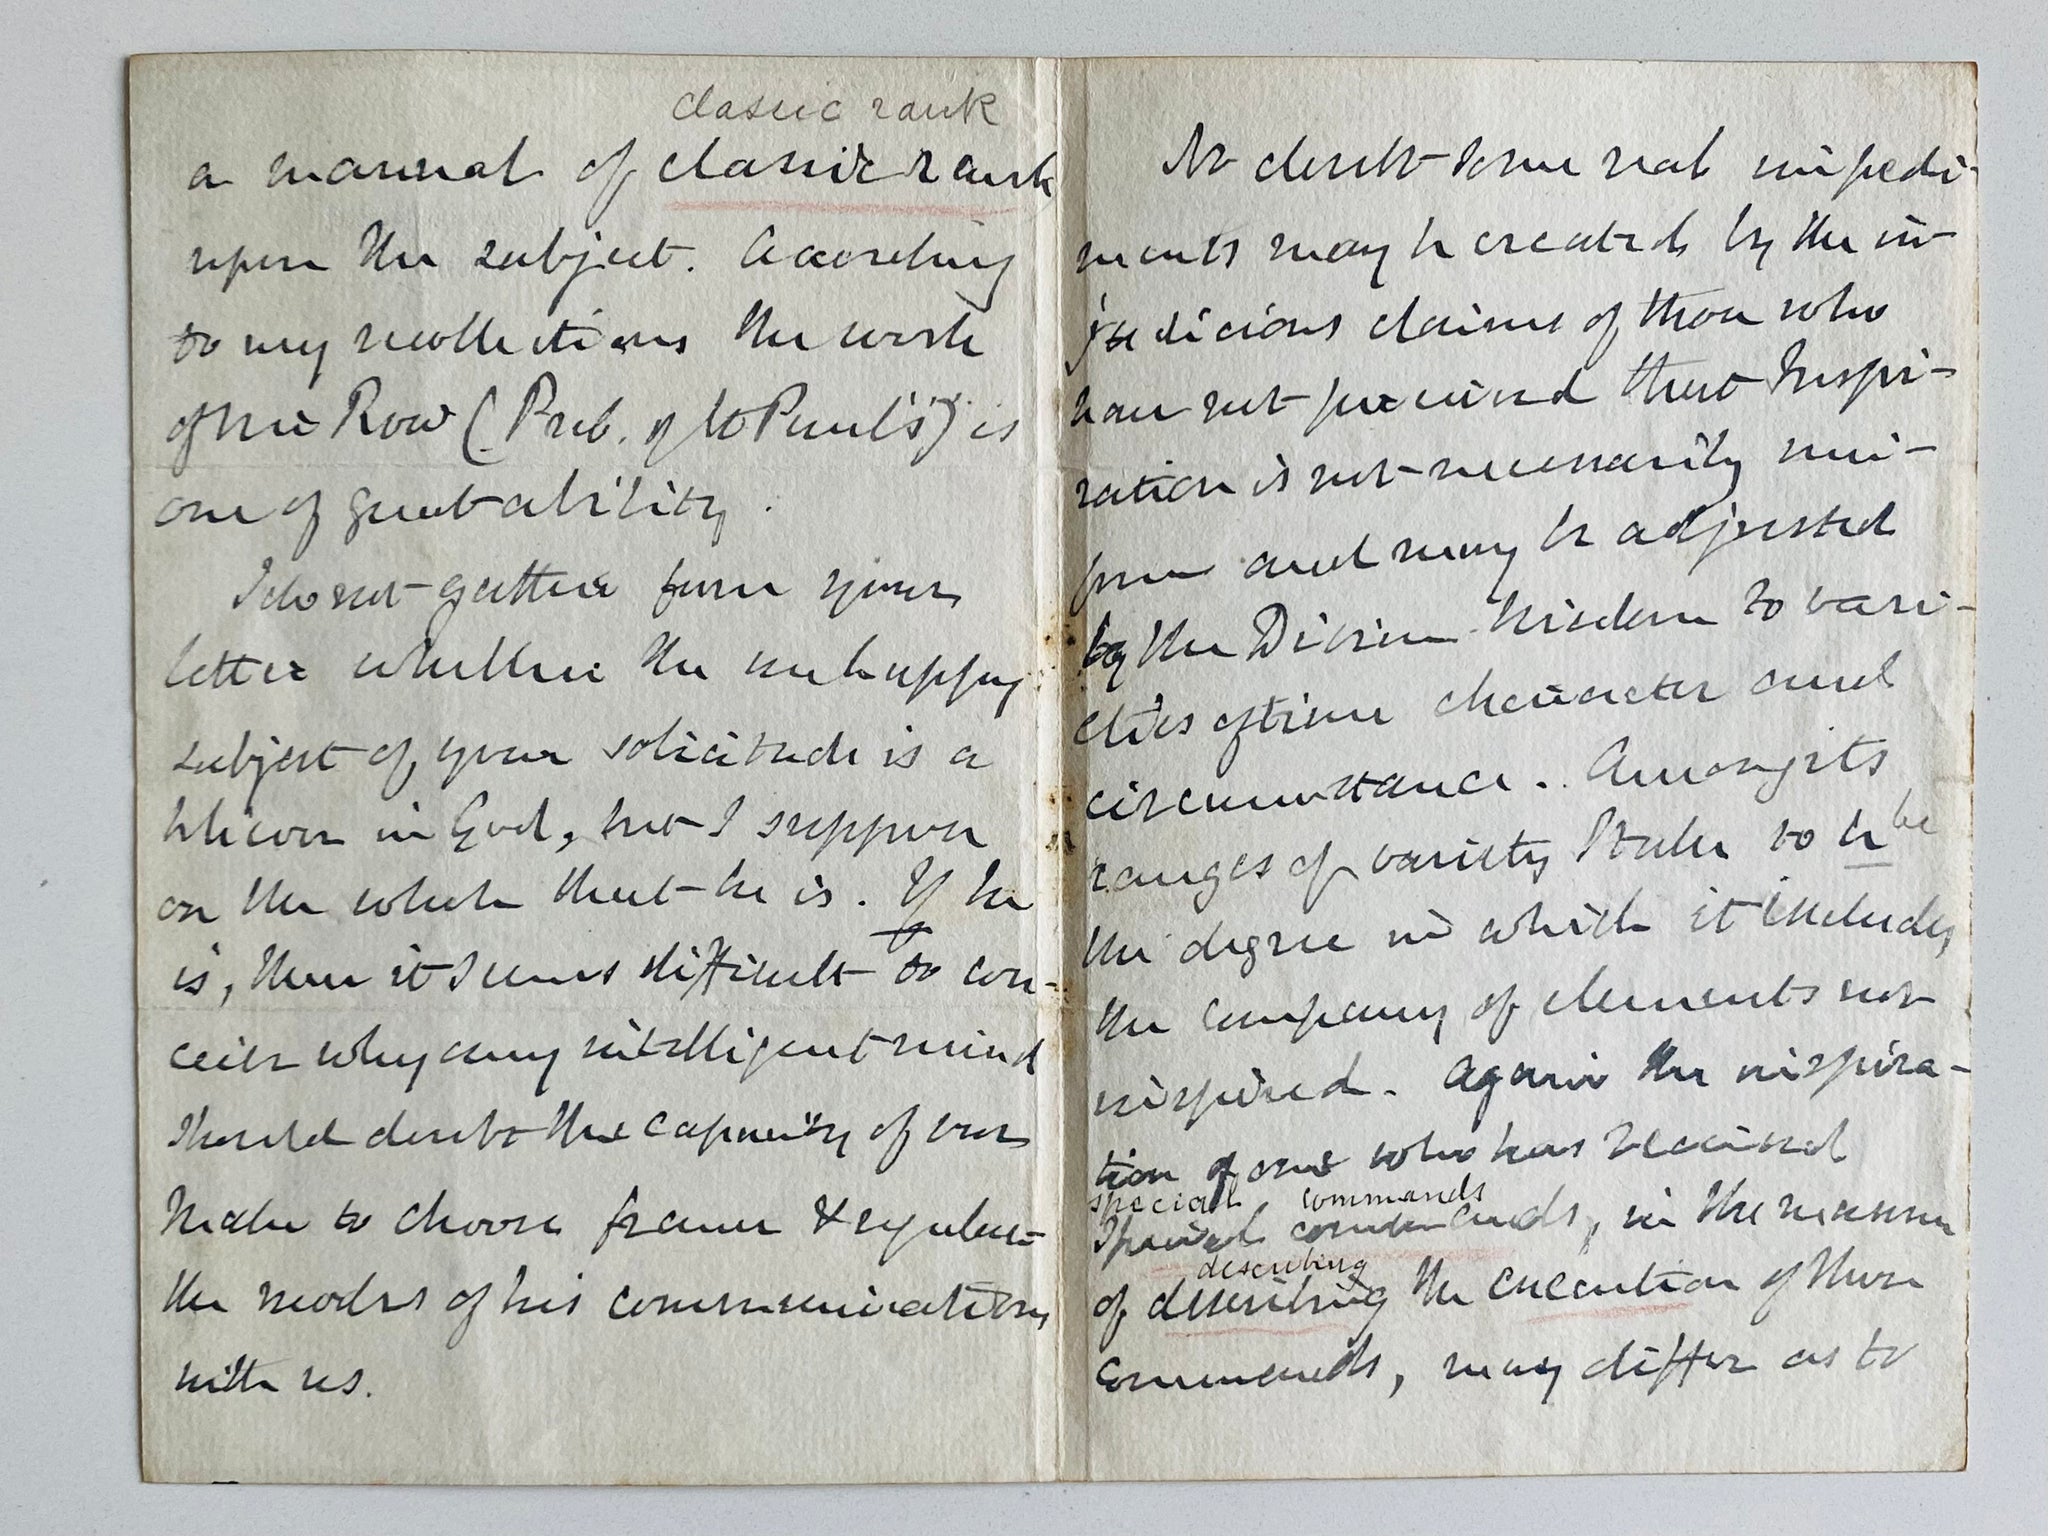 classic rank
a manual of classic rank
upon the subject. According
to my recollections the work
of Mr Row (Preb. of St Paul's) is
one of great ability.
I do not gather from your
letter whether the unhappy
subject of your solicitude is a
believer in God, but I suppose
on the whole that he is. If he
is, then it seems difficult to con-
ceive why any intelligent mind
should doubt the capacity of our
Maker to choose frame & regulate
the modes of his communications
with us.
No doubt some real impedi-
ments may be created by the in-
judicious claims of those who
have not perceived that Inspi-
ration is not necessarily uni-
form and may be adjusted
by the Divine Wisdom to vari-
eties of time character and
circumstance. Among its
ranges of variety I take to be be
the degree in which it includes
the company of elements not
inspired. Again the inspira-
tion of one who has received
special commands
special commands, in the manner
describing
of describing the execution of those
commands, may differ as to